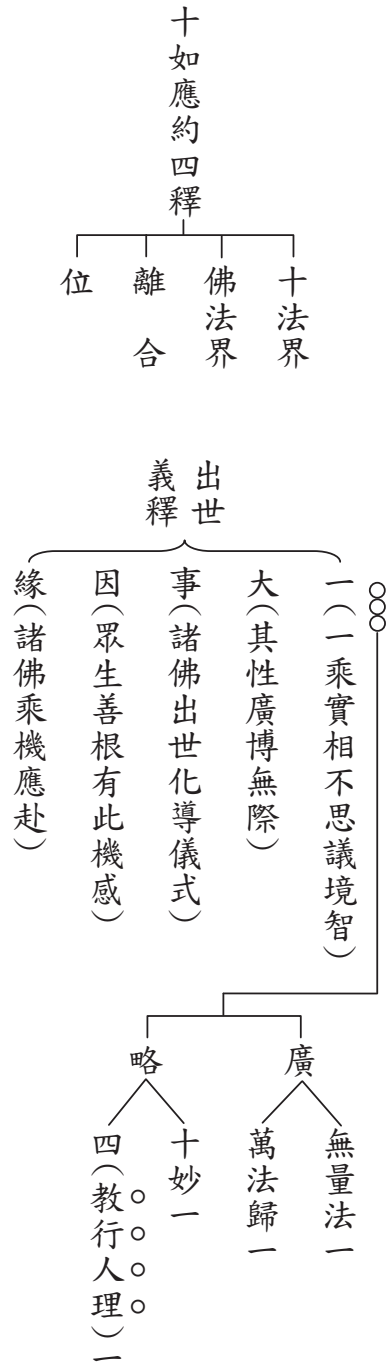 十如應約四釋
十法界
佛法界
離合
位
出世
義釋
一(一乘實相不思議境智)
大(其性廣博無際)
事(諸佛出世化導儀式)
因(眾生善根有此機感)
緣(諸佛乘機應赴)
廣
無量法一
萬法歸一
略
十妙一
四(教行人理)一